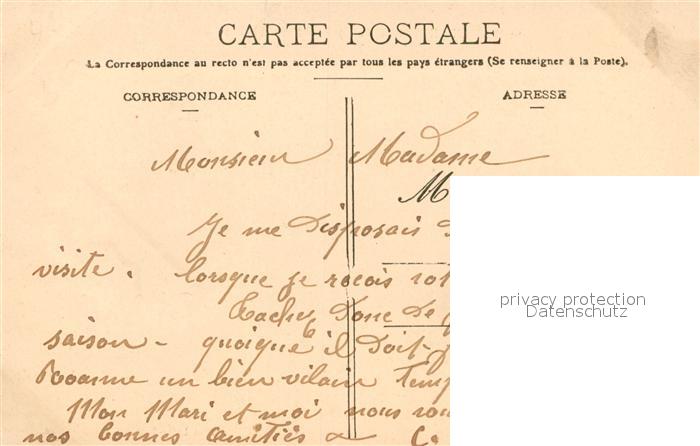 CARTE POSTALE
La Correspondance au recto n'est pas acceptée par tous les pays étrangers (Se renseigner à la Poste).
CORRESPONDANCE
ADRESSE
Monsieur Madame
M
Je me disposais
visite. lorsque je recois vot
Tachez donc de
saison - quoique il doit
Roanne un bien vilain temp
Mon Mari et moi nous vou
nos bonnes amitiés
privacy protection
Datenschutz